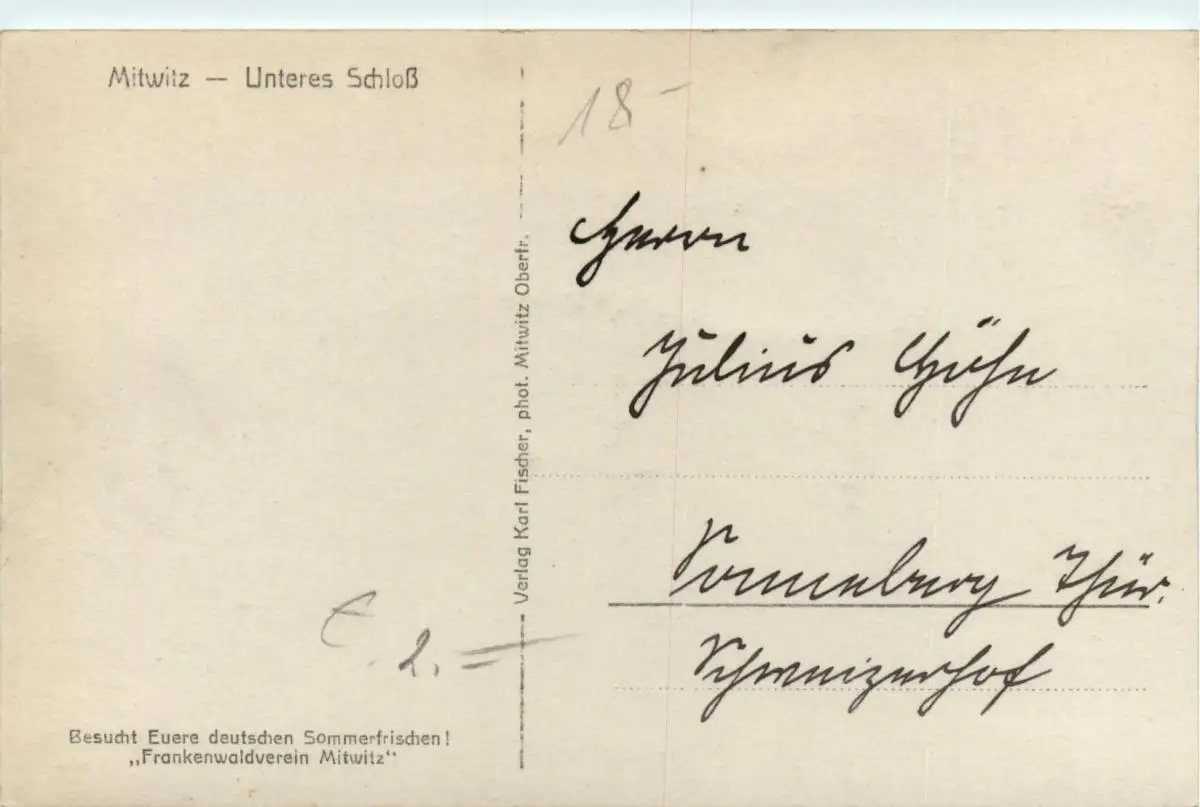 Mitwitz — Unteres Schloß
18.-
Verlag Karl Fischer, phot. Mitwitz Oberfr.
Herrn
Julius Höhn
Sonneberg Thür.
Schweizerhof
2.=
Besucht Euere deutschen Sommerfrischen!
„Frankenwaldverein Mitwitz“